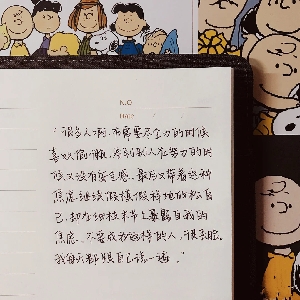 NO.
DATE
"很多人啊，在需要尽全力的时候
喜欢偷懒，看到别人在努力的时
候又没有安全感，最后又带着这种
焦虑继续假模假样地放松自
己，却在细枝末节上暴露自我的
焦虑，不要成为这样的人，很丢脸。
我每天都跟自己说一遍。"